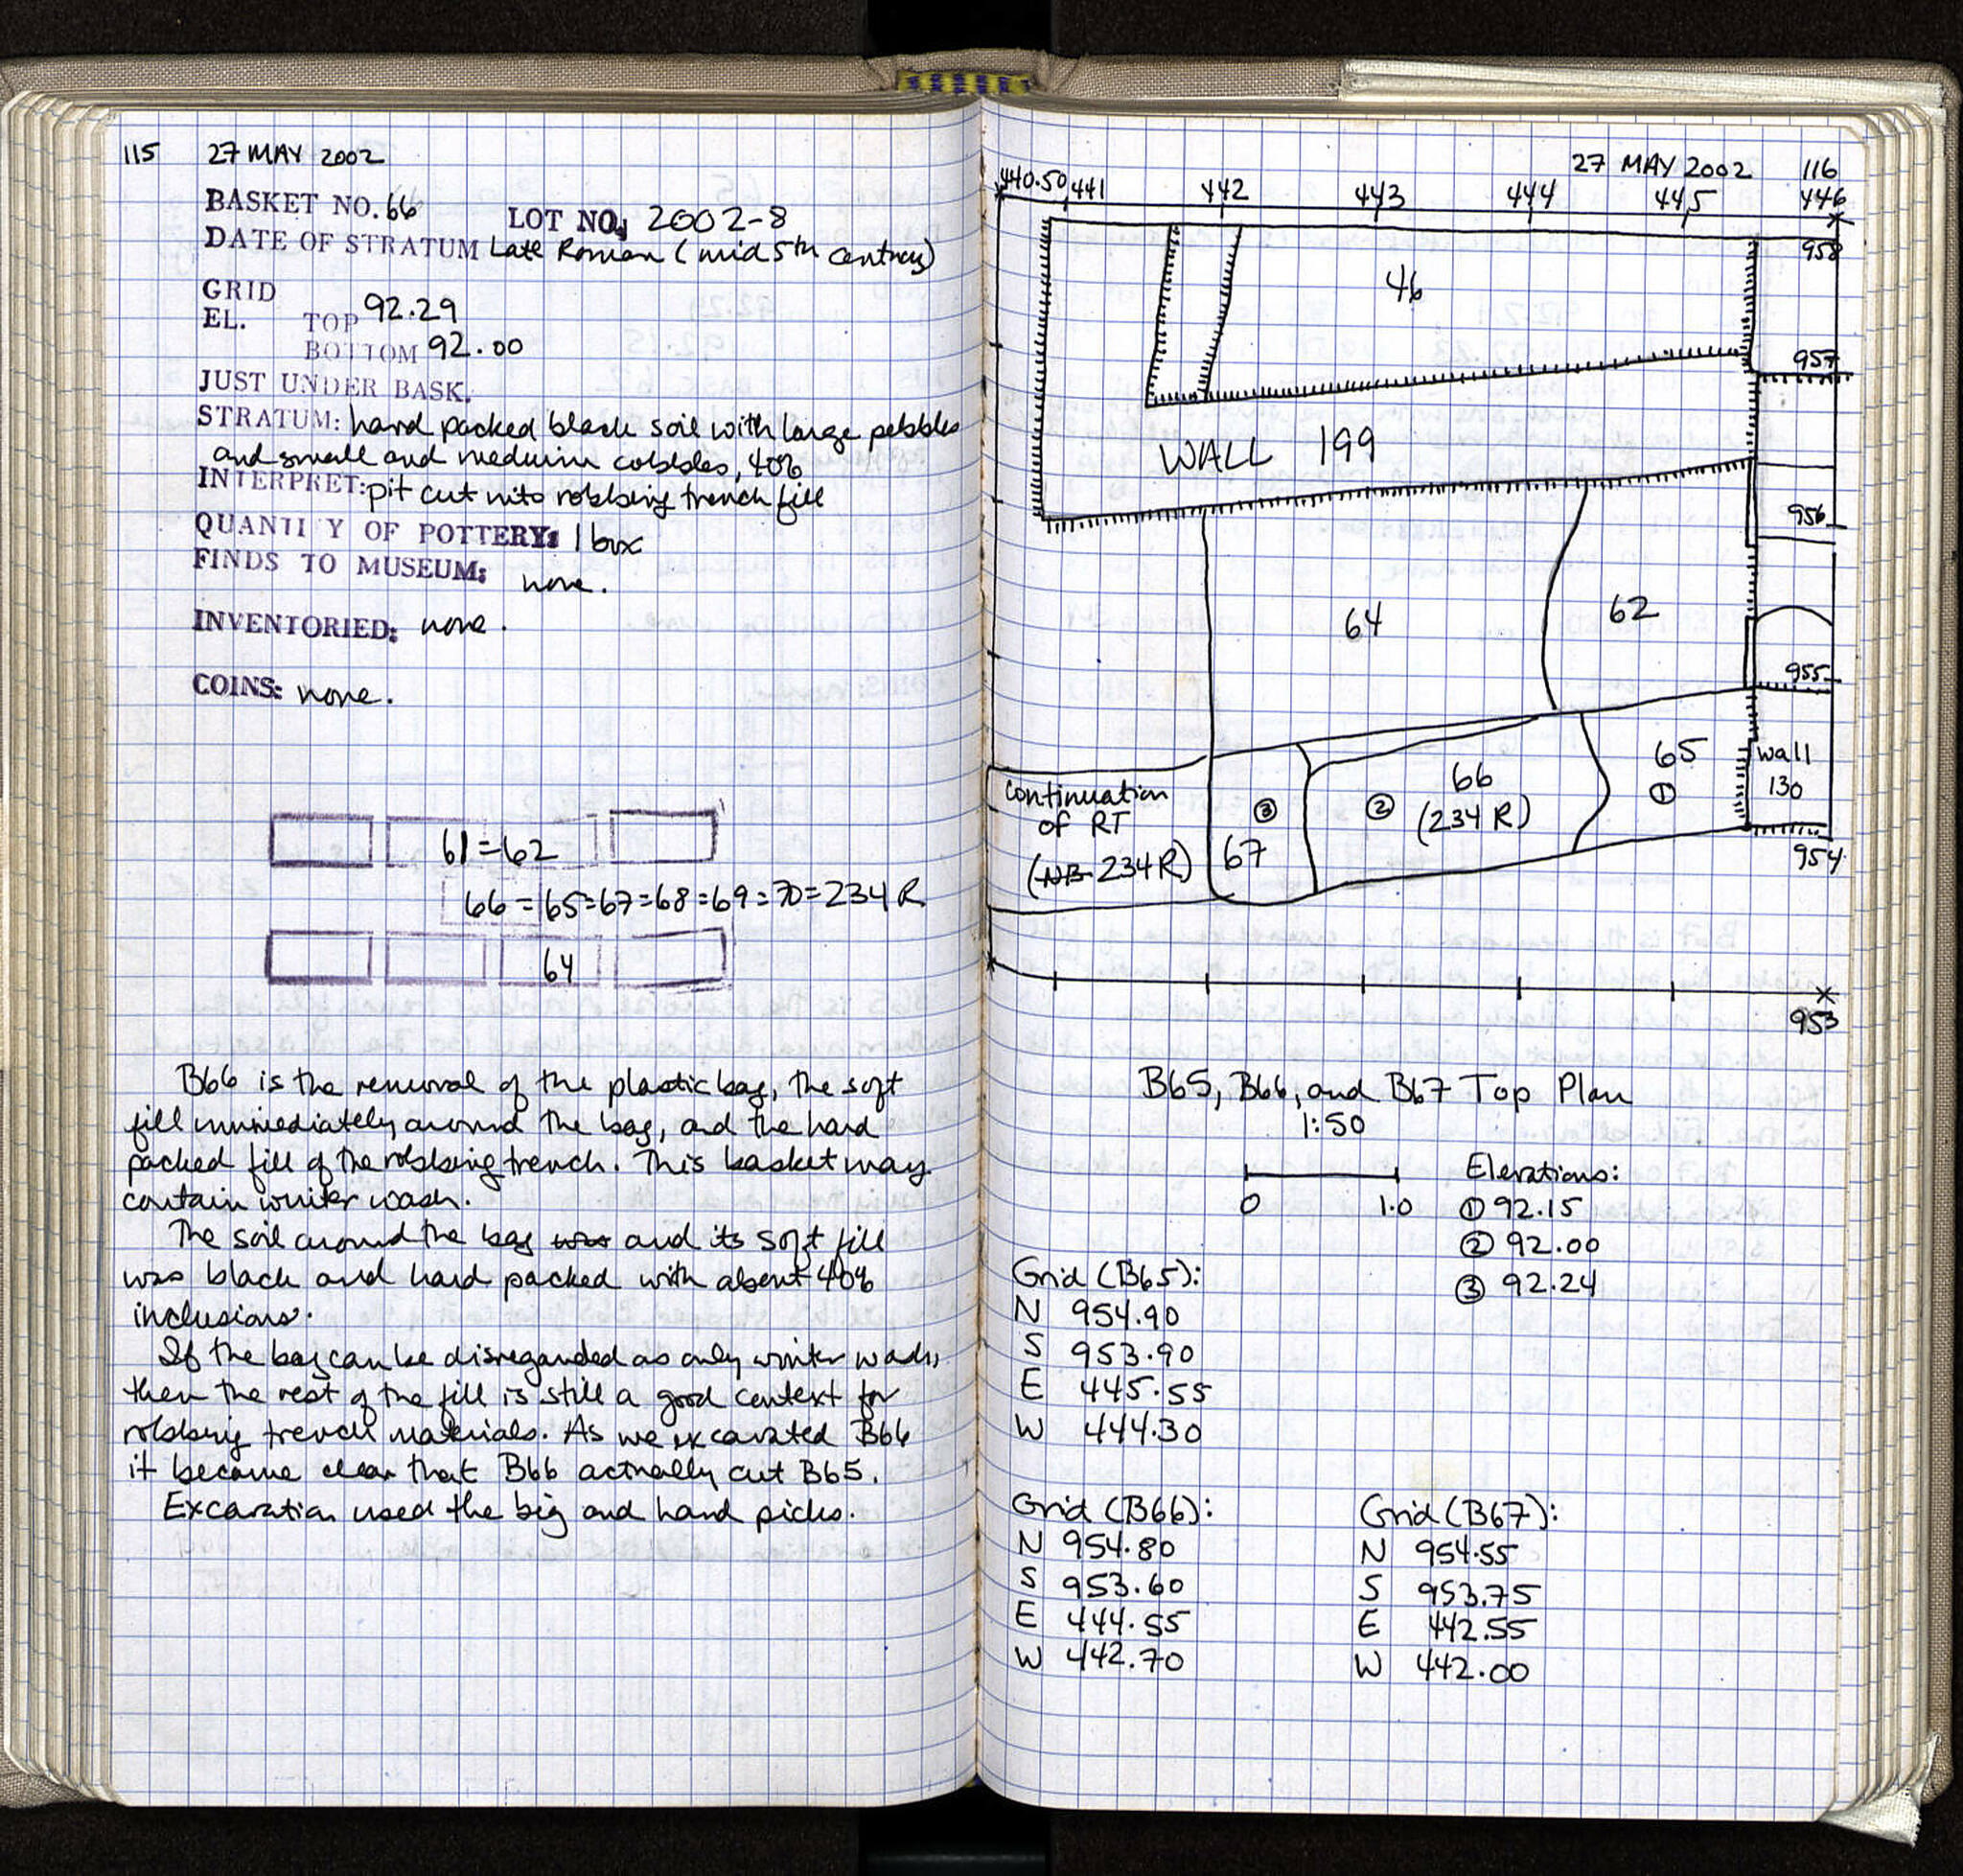 115 27 MAY 2002
BASKET NO. 66 LOT NO. 2002-8
DATE OF STRATUM Late Roman (mid 5th century)
GRID
EL. TOP 92.29
BOTTOM 92.00
JUST UNDER BASK.
STRATUM: hard packed black soil with large pebbles
and small and medium cobbles, 40%
INTERPRET: pit cut into robbing trench fill
QUANTITY OF POTTERY: 1 box
FINDS TO MUSEUM: none.
INVENTORIED: none.
COINS: none.
61=62
66=65=67=68=69=70=234R
64
B66 is the removal of the plastic bag, the soft
fill immediately around the bag, and the hard
packed fill of the robbing trench. This basket may
contain winter wash.
The soil around the bag was and its soft fill
was black and hard packed with about 40%
inclusions.
If the bag can be disregarded as only winter wash,
then the rest of the fill is still a good context for
robbing trench materials. As we excavated B66
it became clear that B66 actually cut B65.
Excavation used the big and hand picks.
27 MAY 2002 116
440.50 441 442 443 444 445 446
958
46
957
WALL 199
956
64
62
955
65
①
wall
130
66
(234 R)
②
③
67
continuation
of RT
(NB 234R)
954
953
B65, B66, and B67 Top Plan
1:50
0 1.0
Elevations:
① 92.15
② 92.00
③ 92.24
Grid (B65):
N 954.90
S 953.90
E 445.55
W 444.30
Grid (B66):
N 954.80
S 953.60
E 444.55
W 442.70
Grid (B67):
N 954.55
S 953.75
E 442.55
W 442.00